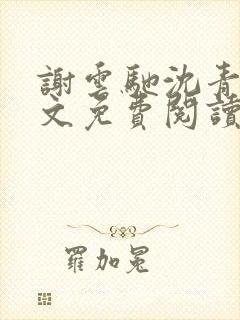 謝雲馳沈青
文免費閱讀
羅加冕